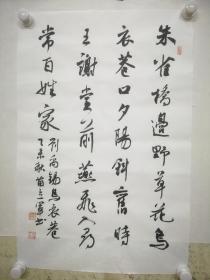 朱雀橋邊野草花烏
衣巷口夕陽斜舊時
王謝堂前燕飛入尋
常百姓家
刘禹錫烏衣巷
乙未秋